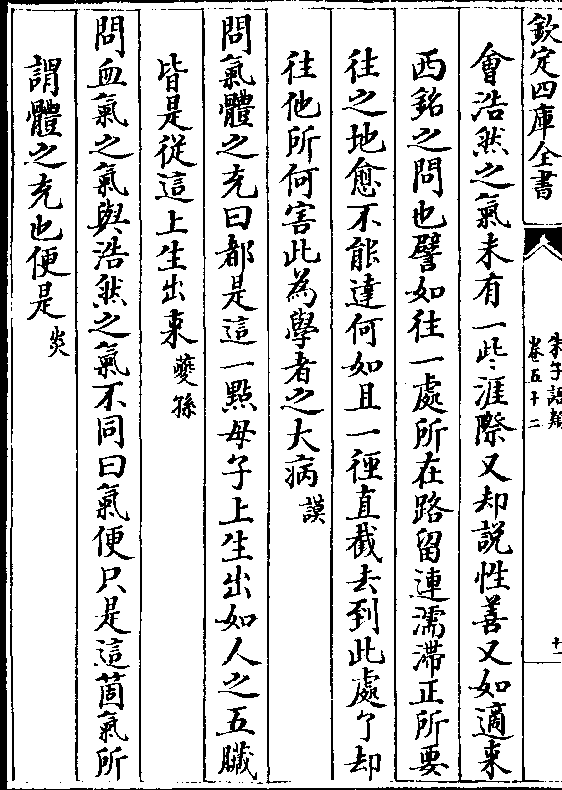 欽定四庫全書
朱子語類
卷五十二
十一
會浩然之氣未有一些涯際又却說性善又如適来
西銘之問也譬如往一處所在路留連濡滯正所要
往之地愈不能達何如且一徑直截去到此處了却
往他所何害此為學者之大病謨
問氣體之充曰都是這一點母子上生出如人之五臟
皆是從這上生出来夔孫
問血氣之氣與浩然之氣不同曰氣便只是這箇氣所
謂體之充也便是炎